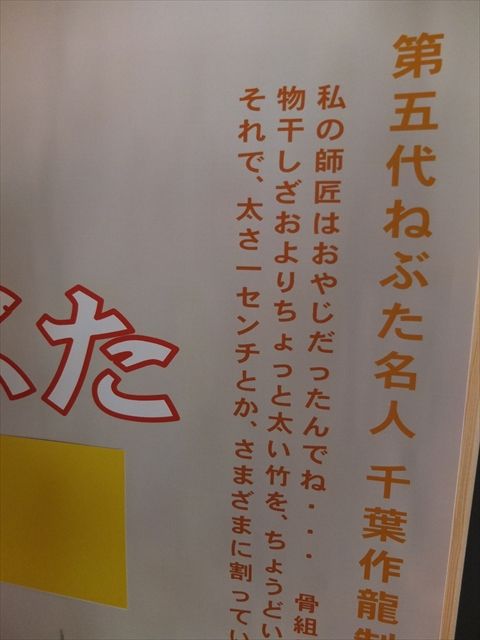 第五代ねぶた名人 千葉作龍製
私の師匠はおやじだったんでね・・・ 骨組
物干しざおよりちょっと太い竹を、ちょうどい
それで、太さ一センチとか、さまざまに割ってい
ぶた